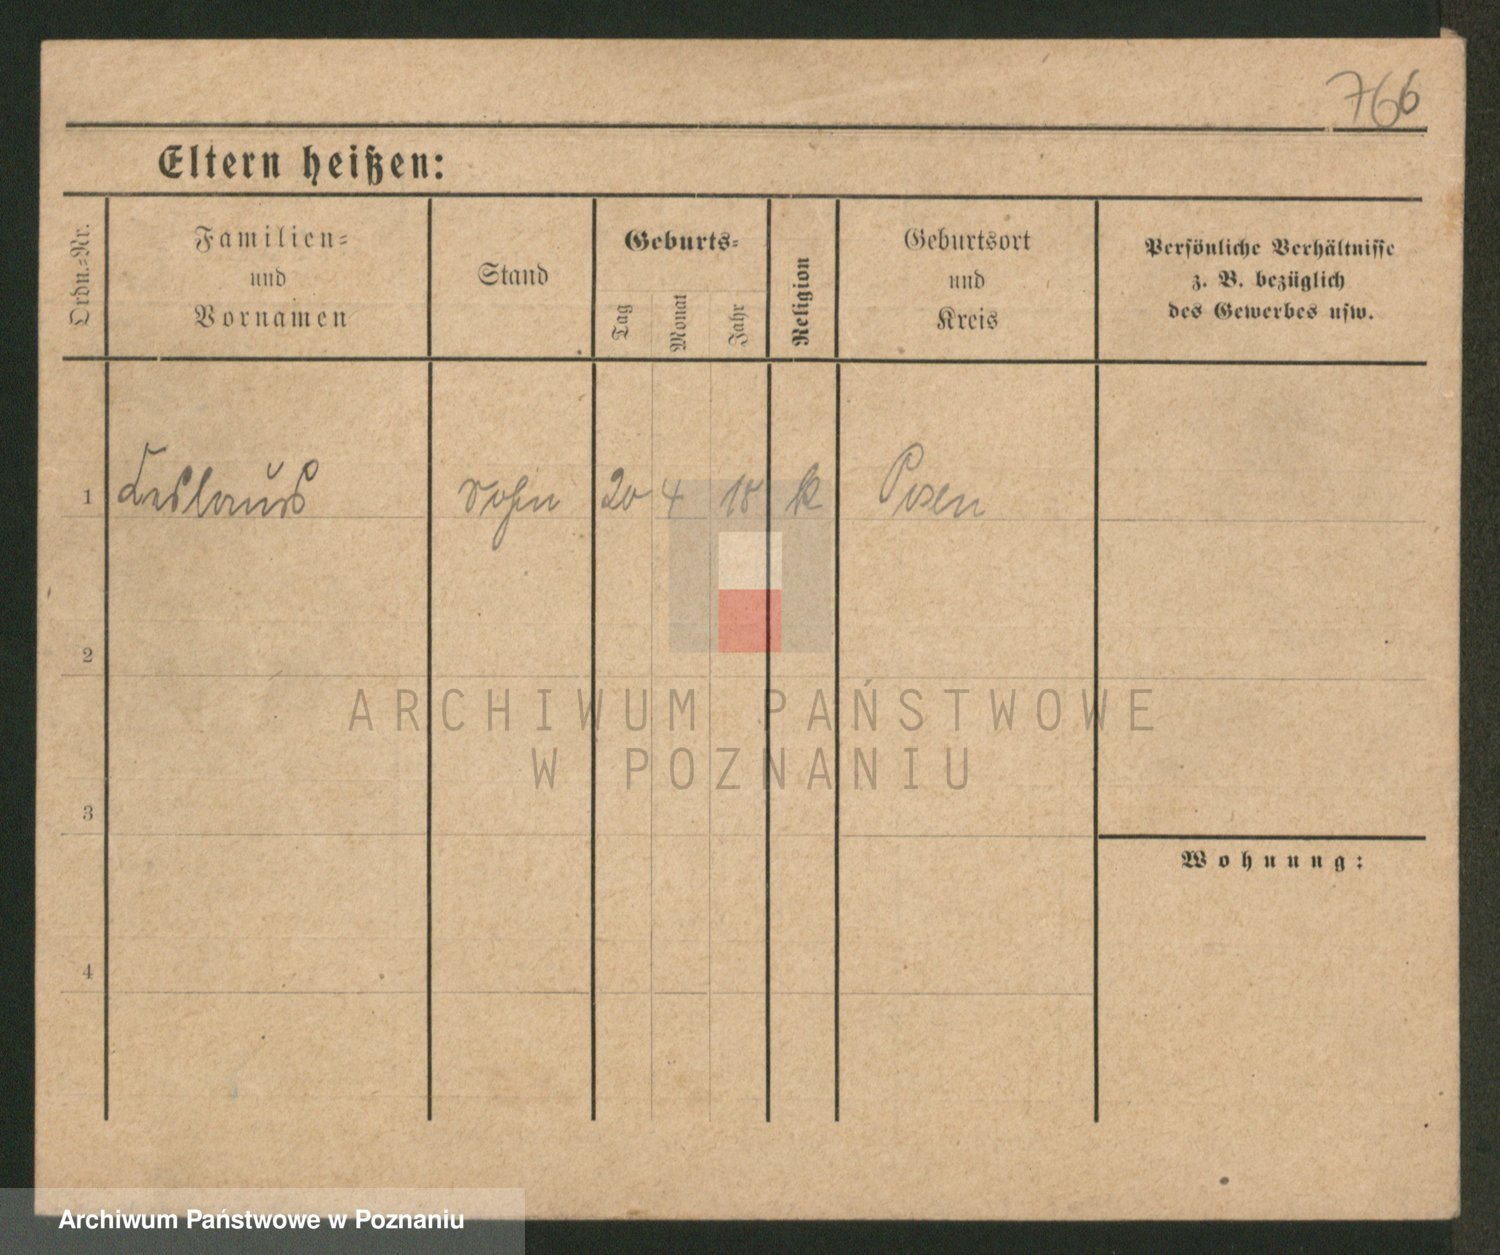 766
Eltern heißen:
Ordn.-Nr.
Familien-
und
Vornamen
Stand
Geburts-
Tag
Monat
Jahr
Religion
Geburtsort
und
Kreis
Persönliche Verhältnisse
z. B. bezüglich
des Gewerbes usw.
1 Ceslaus Sohn 20 4 18 k Posen
2
3
4
Wohnung:
ARCHIWUM PAŃSTWOWE
W POZNANIU
Archiwum Państwowe w Poznaniu